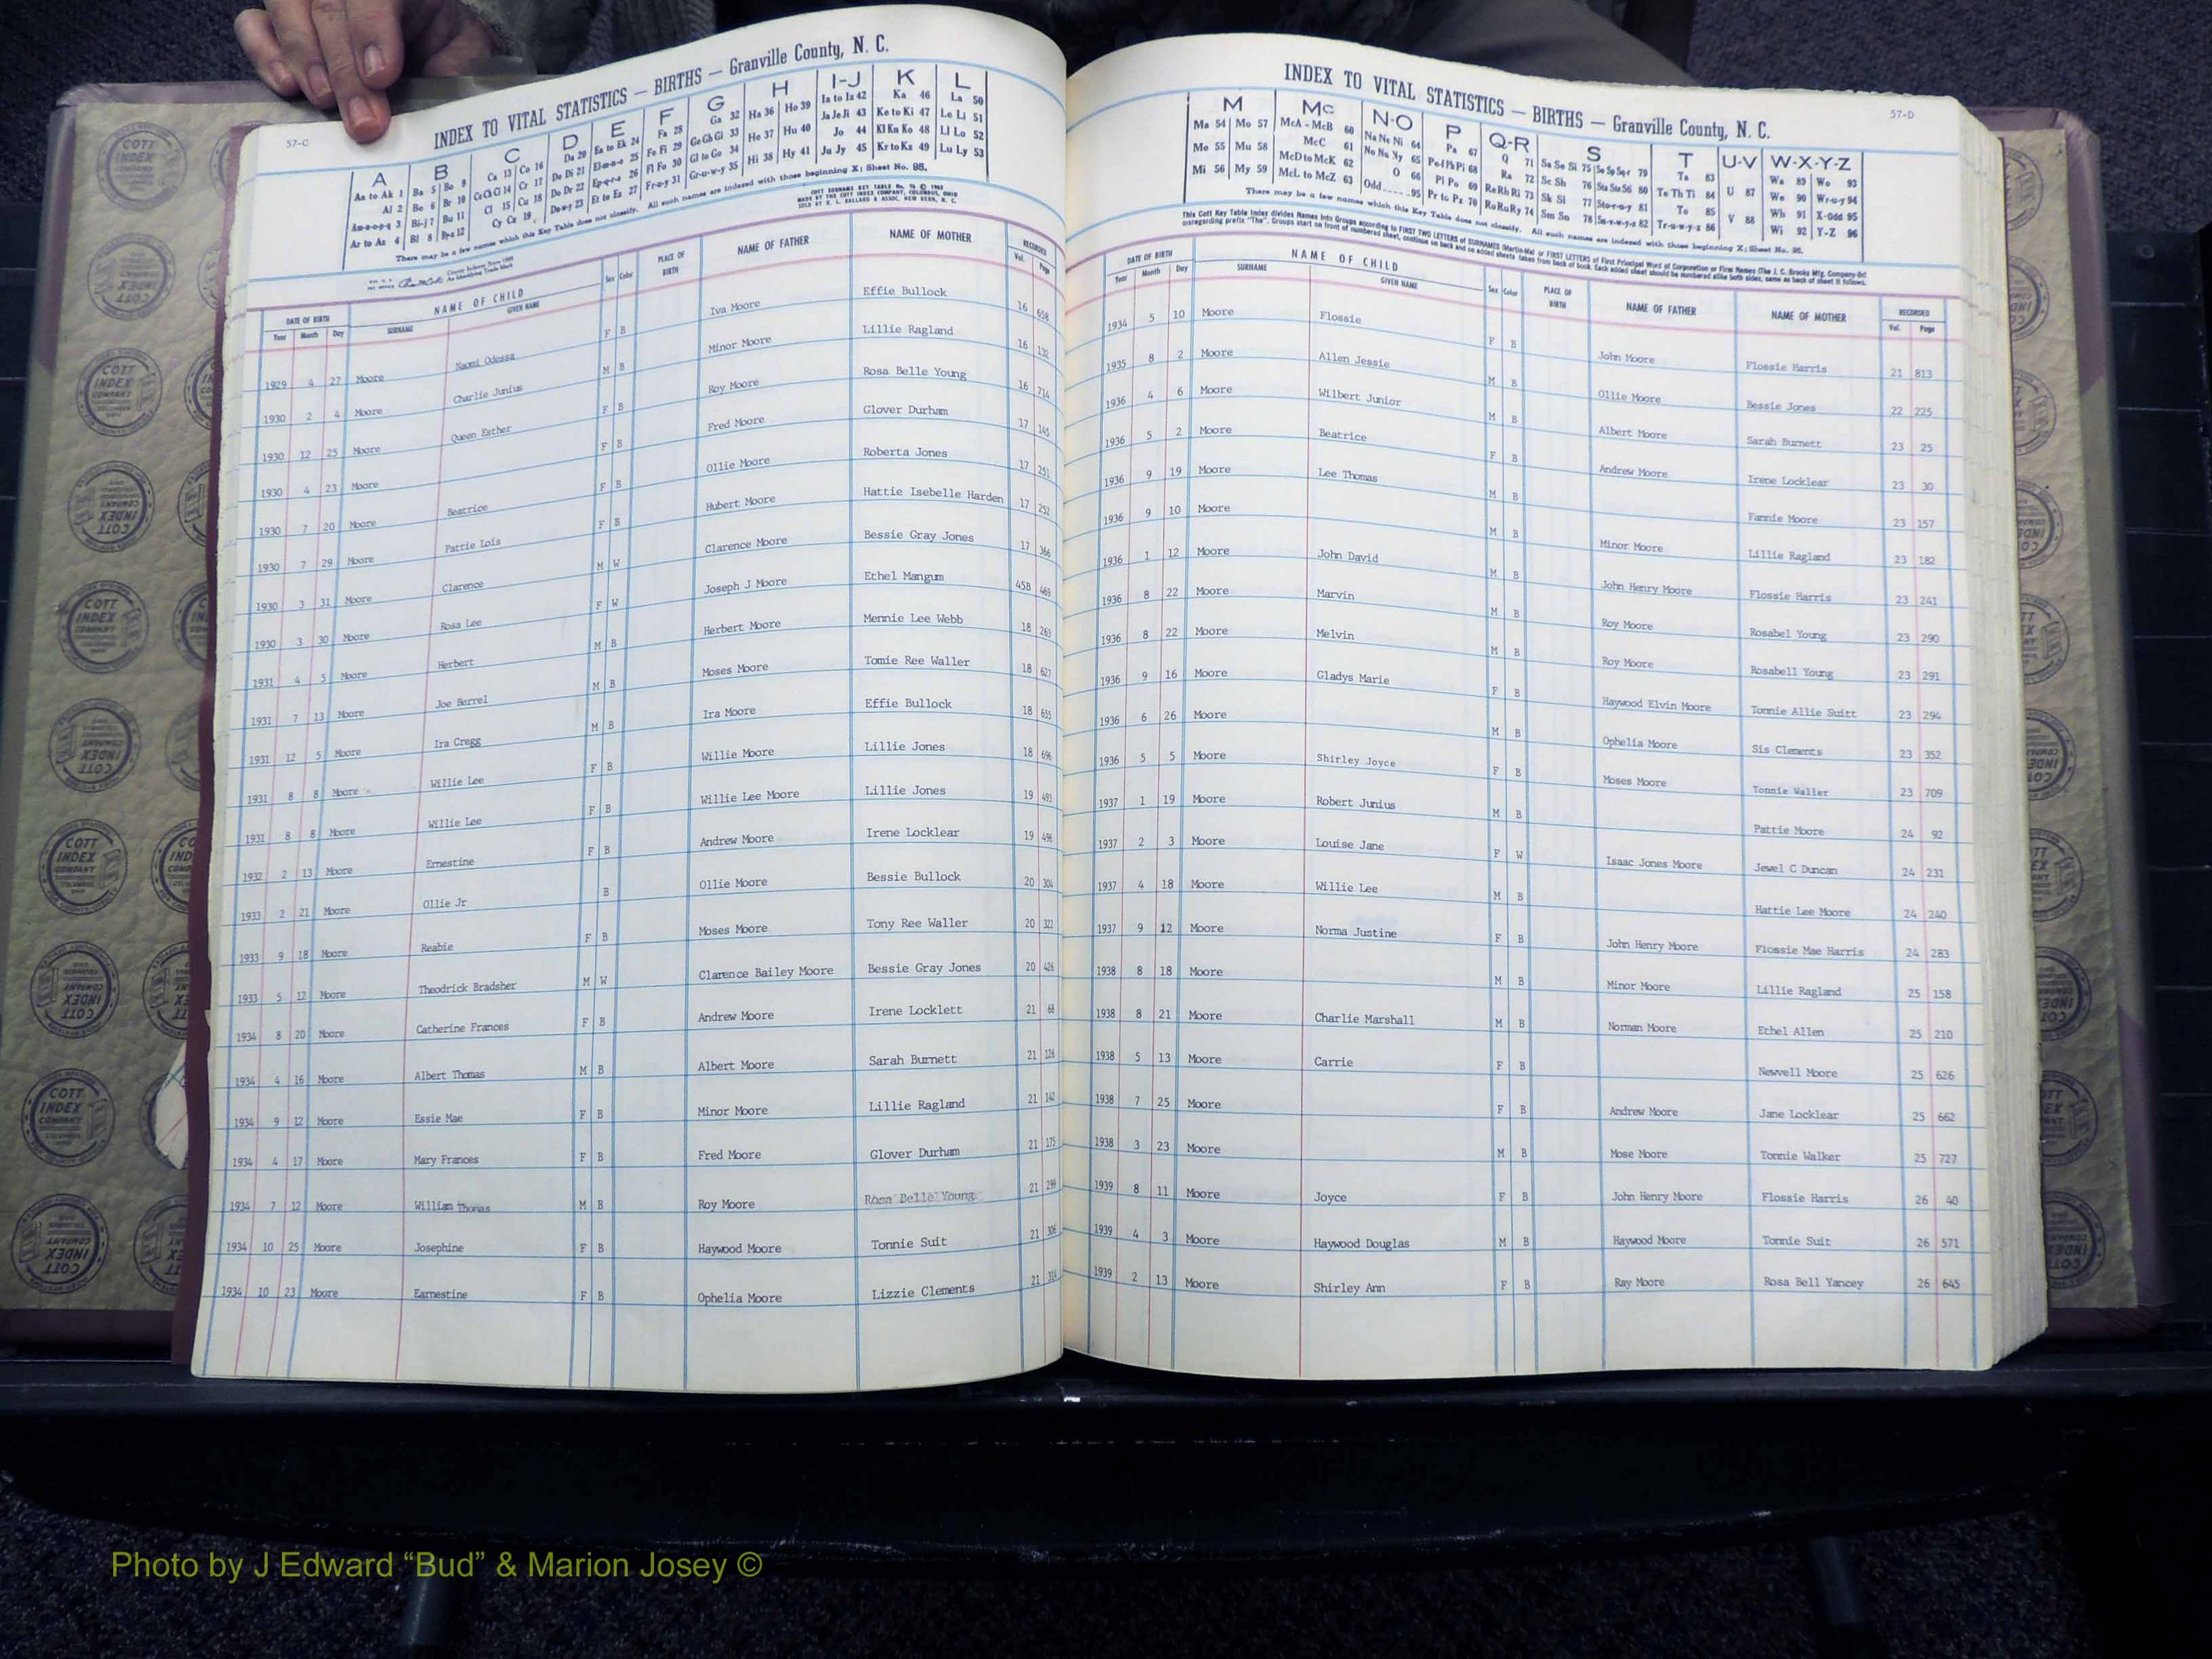 57-C
INDEX TO VITAL STATISTICS — BIRTHS — Granville County, N. C.
A B C D E F G H I-J K L
Aa to Ak 1 Ba 5 Bo 9 Ca 13 Co 16 Da 20 Ea to Ek 24 Fa 28 Ga 32 Ha 36 Ho 39 Ia to Iz 42 Ka 46 La 50
Al 2 Be 6 Br 10 Ce Ch Ci 14 Cr 17 De Di 21 El-m-n-o 25 Fe Fi 29 Ge Gh Gi 33 He 37 Hu 40 Ja Je Ji 43 Ke to Ki 47 Le Li 51
Am-n-o-p-q 3 Bi-j 7 Bu 11 Cl 15 Cu 18 Do Dr 22 Ep-q-r-s 26 Fl Fo 30 Gl to Go 34 Hi 38 Hy 41 Jo 44 Kl Kn Ko 48 Ll Lo 52
Ar to Az 4 Bl 8 By-z 12 Cy Cz 19 Du-w-y 23 Et to Ez 27 Fr-u-y 31 Gr-u-w-y 35 Ju Jy 45 Kr to Kz 49 Lu Ly 53
There may be a few names which this Key Table does not classify. All such names are indexed with those beginning X; Sheet No. 95.
DATE OF BIRTH NAME OF CHILD Sex Color PLACE OF BIRTH NAME OF FATHER NAME OF MOTHER RECORDED
Year Month Day SURNAME GIVEN NAME Vol. Page
1929 4 27 Moore Naomi Odessa F B Iva Moore Effie Bullock 16 658
1930 2 4 Moore Charlie Junius M B Minor Moore Lillie Ragland 16 132
1930 12 25 Moore Queen Esther F B Roy Moore Rosa Belle Young 16 714
1930 4 23 Moore F B Fred Moore Glover Durham 17 145
1930 7 20 Moore Beatrice F B Ollie Moore Roberta Jones 17 251
1930 7 29 Moore Pattie Lois F B Hubert Moore Hattie Isebelle Harden 17 252
1930 3 31 Moore Clarence M W Clarence Moore Bessie Gray Jones 17 366
1930 3 30 Moore Rosa Lee F W Joseph J Moore Ethel Mangum 45B 469
1931 4 5 Moore Herbert M B Herbert Moore Mennie Lee Webb 18 263
1931 7 13 Moore Joe Berrel M B Moses Moore Tomie Ree Waller 18 627
1931 12 5 Moore Ira Cregg M B Ira Moore Effie Bullock 18 655
1931 8 8 Moore Willie Lee F B Willie Moore Lillie Jones 18 696
1931 8 8 Moore Willie Lee F B Willie Lee Moore Lillie Jones 19 493
1932 2 13 Moore Ernestine F B Andrew Moore Irene Locklear 19 496
1933 2 21 Moore Ollie Jr B Ollie Moore Bessie Bullock 20 304
1933 9 18 Moore Reabie F B Moses Moore Tony Ree Waller 20 322
1933 5 12 Moore Theodrick Bradsher M W Clarence Bailey Moore Bessie Gray Jones 20 426
1934 8 20 Moore Catherine Frances F B Andrew Moore Irene Locklett 21 68
1934 4 16 Moore Albert Thomas M B Albert Moore Sarah Burnett 21 126
1934 9 12 Moore Essie Mae F B Minor Moore Lillie Ragland 21 142
1934 4 17 Moore Mary Frances F B Fred Moore Glover Durham 21 175
1934 7 12 Moore William Thomas M B Roy Moore Rosa Belle Young 21 299
1934 10 25 Moore Josephine F B Haywood Moore Tonnie Suit 21 306
1934 10 23 Moore Earnestine F B Ophelia Moore Lizzie Clements 21
57-D
INDEX TO VITAL STATISTICS — BIRTHS — Granville County, N. C.
M Mc N-O P Q-R S T U-V W-X-Y-Z
Ma 54 Mo 57 McA - McB 60 Na Ne Ni 64 Pa 67 Q 71 Sa Se Si 75 Sp Sq Sr 79 Ta 83 U 87 Wa 89 Wo 93
Me 55 Mu 58 McC 61 No Nu Ny 65 Pe Pf Ph Pi 68 Ra 72 Sc Sh 76 Sta Ste Sti 80 Te Th Ti 84 V 88 We 90 Wr-u-y 94
Mi 56 My 59 McD to McK 62 O 66 Pl Po 69 Re Rh Ri 73 Sk Sl 77 Sto-r-u-y 81 To 85 Wh 91 X-Odd 95
McL to McZ 63 Odd 95 Pr to Pz 70 Ro Ru Ry 74 Sm Sn 78 Su-v-w-y-z 82 Tr-u-w-y-z 86 Wi 92 Y-Z 96
There may be a few names which this Key Table does not classify. All such names are indexed with those beginning X; Sheet No. 95.
This Cott Key Table Index divides Names into Groups according to FIRST TWO LETTERS of SURNAMES (Martin-Ma) or FIRST LETTERS of First Principal Word of Corporation or Firm Names (The J. C. Brooks Mfg. Company-Br)
disregarding prefix "The". Groups start on front of numbered sheet, continue on back and on added sheets taken from back of book. Each added sheet should be numbered alike both sides, same as back of sheet it follows.
DATE OF BIRTH NAME OF CHILD Sex Color PLACE OF BIRTH NAME OF FATHER NAME OF MOTHER RECORDED
Year Month Day SURNAME GIVEN NAME Vol. Page
1934 5 10 Moore Flossie F B John Moore Flossie Harris 21 813
1935 8 2 Moore Allen Jessie M B Ollie Moore Bessie Jones 22 225
1936 4 6 Moore Wilbert Junior M B Albert Moore Sarah Burnett 23 25
1936 5 2 Moore Beatrice F B Andrew Moore Irene Locklear 23 30
1936 9 19 Moore Lee Thomas M B Fannie Moore 23 157
1936 9 10 Moore M B Minor Moore Lillie Ragland 23 182
1936 1 12 Moore John David M B John Henry Moore Flossie Harris 23 241
1936 8 22 Moore Marvin M B Roy Moore Rosabel Young 23 290
1936 8 22 Moore Melvin M B Roy Moore Rosabell Young 23 291
1936 9 16 Moore Gladys Marie F B Haywood Elvin Moore Tonnie Allie Suitt 23 294
1936 6 26 Moore M B Ophelia Moore Sis Clements 23 352
1936 5 5 Moore Shirley Joyce F B Moses Moore Tonnie Waller 23 709
1937 1 19 Moore Robert Junius M B Pattie Moore 24 92
1937 2 3 Moore Louise Jane F W Isaac Jones Moore Jewel C Duncan 24 231
1937 4 18 Moore Willie Lee M B Hattie Lee Moore 24 240
1937 9 12 Moore Norma Justine F B John Henry Moore Flossie Mae Harris 24 283
1938 8 18 Moore M B Minor Moore Lillie Ragland 25 158
1938 8 21 Moore Charlie Marshall M B Norman Moore Ethel Allen 25 210
1938 5 13 Moore Carrie F B Newvell Moore 25 626
1938 7 25 Moore F B Andrew Moore Jane Locklear 25 662
1938 3 23 Moore M B Mose Moore Tonnie Walker 25 727
1939 8 11 Moore Joyce F B John Henry Moore Flossie Harris 26 40
1939 4 3 Moore Haywood Douglas M B Haywood Moore Tonnie Suit 26 571
1939 2 13 Moore Shirley Ann F B Ray Moore Rosa Bell Yancey 26 645
COTT INDEX COMPANY
Photo by J Edward “Bud” & Marion Josey ©